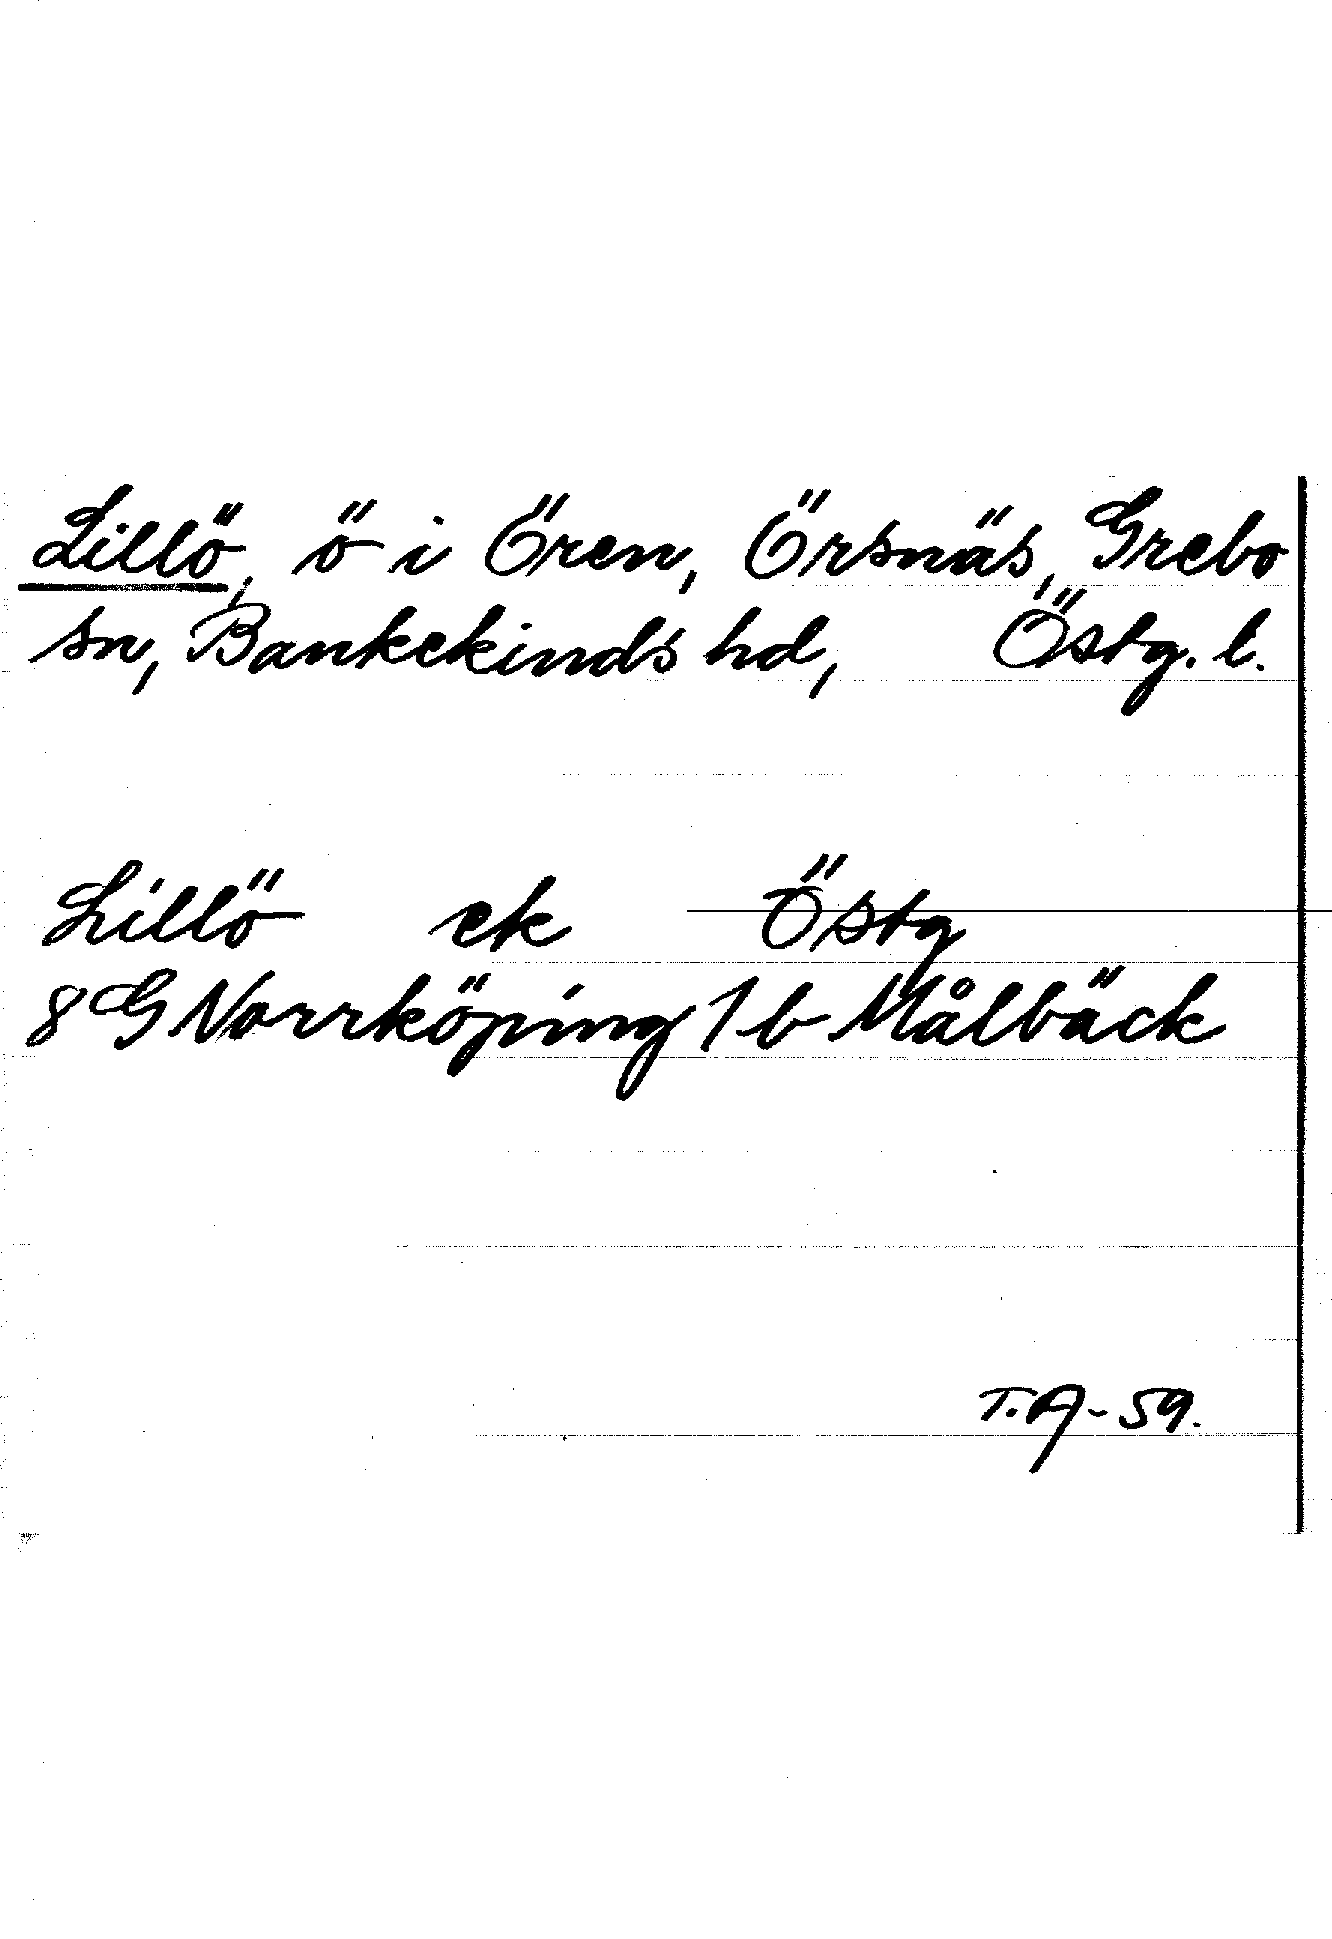 Lillö, ö i Ören, Örsnäs, Grebo
sn, Bankekinds hd, Östg. l.
Lillö ek Östg
8 G Norrköping 1 b Målbäck
T. A - 59.